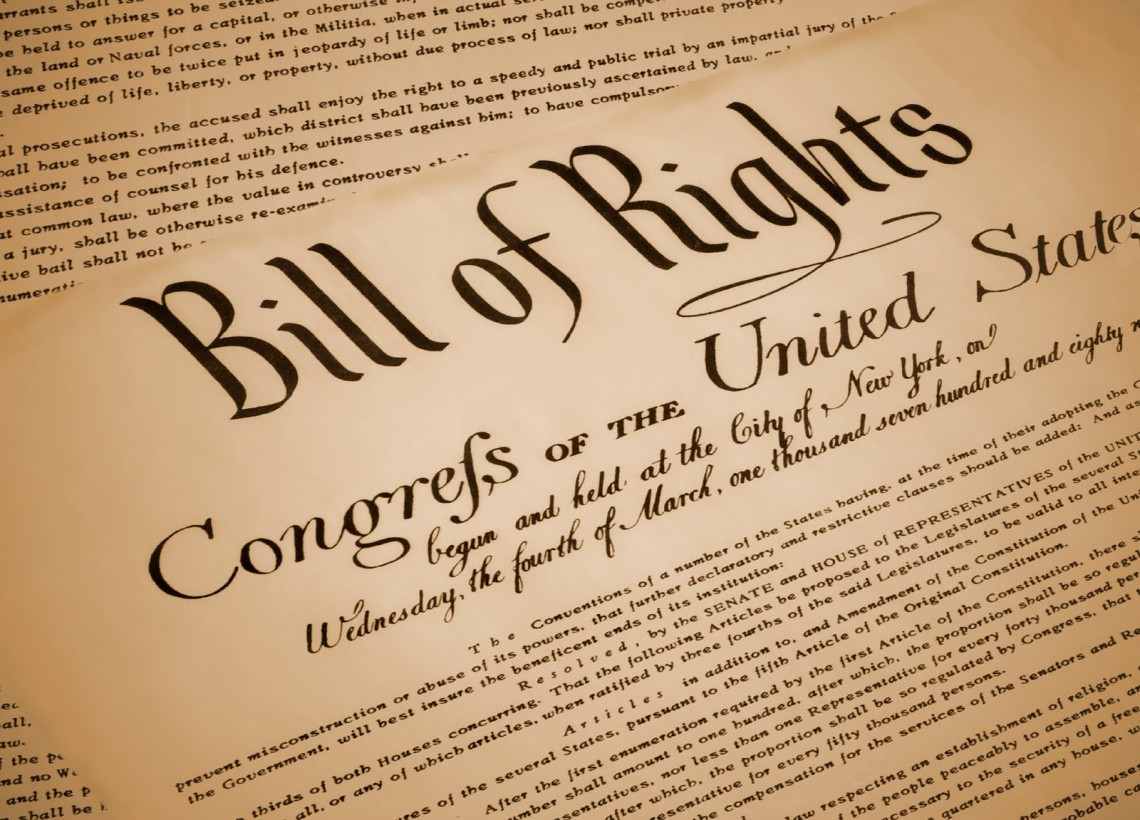 shall
persons or things to be seized
be held to answer for a capital, or otherwise
the land or Naval forces, or in the Militia, when in actual
same offence to be twice put in jeopardy of life or limb; nor shall be
deprived of life, liberty, or property, without due process of law; nor shall private property
prosecutions, the accused shall enjoy the right to a speedy and public trial by an impartial jury of the
have been committed, which district shall have been previously ascertained by law, and
sation; to be confronted with the witnesses against him; to have compulsory
ssistance of counsel for his defence.
at common law, where the value in controversy
a jury, shall be otherwise re-exami
ive bail shall not be
Bill of Rights
Congreſs OF THE United States
begun and held at the City of New York, on
Wednesday, the fourth of March, one thousand seven hundred and eighty
The Conventions of a number of the States having, at the time of their adopting the
prevent misconstruction or abuse of its powers, that further declaratory and restrictive clauses should be added: And as
the Government, will best insure the beneficent ends of its institution:
Resolved, by the SENATE and HOUSE of REPRESENTATIVES of the UNIT
thirds of both Houses concurring. That the following Articles be proposed to the Legislatures of the several
all, or any of which articles, when ratified by three fourths of the said Legislatures, to be valid to all
Articles in addition to, and Amendment of the Constitution of the
of the several States, pursuant to the fifth Article of the Original Constitution.
After the first enumeration required by the first Article of the Constitution, there
umber shall amount to one hundred, after which, the proportion shall be so
sentatives, nor less than one Representative for every forty thousand
after which, the proportion shall be so regulated by Congress, that
sentative for every fifty thousand persons.
compensation for the services of the Senators and
law respecting an establishment of religion,
of the people peaceably to assemble, and
cessary to the security of a free
quartered in any house,
persons,
all,
of the
and no
and the p
shall be